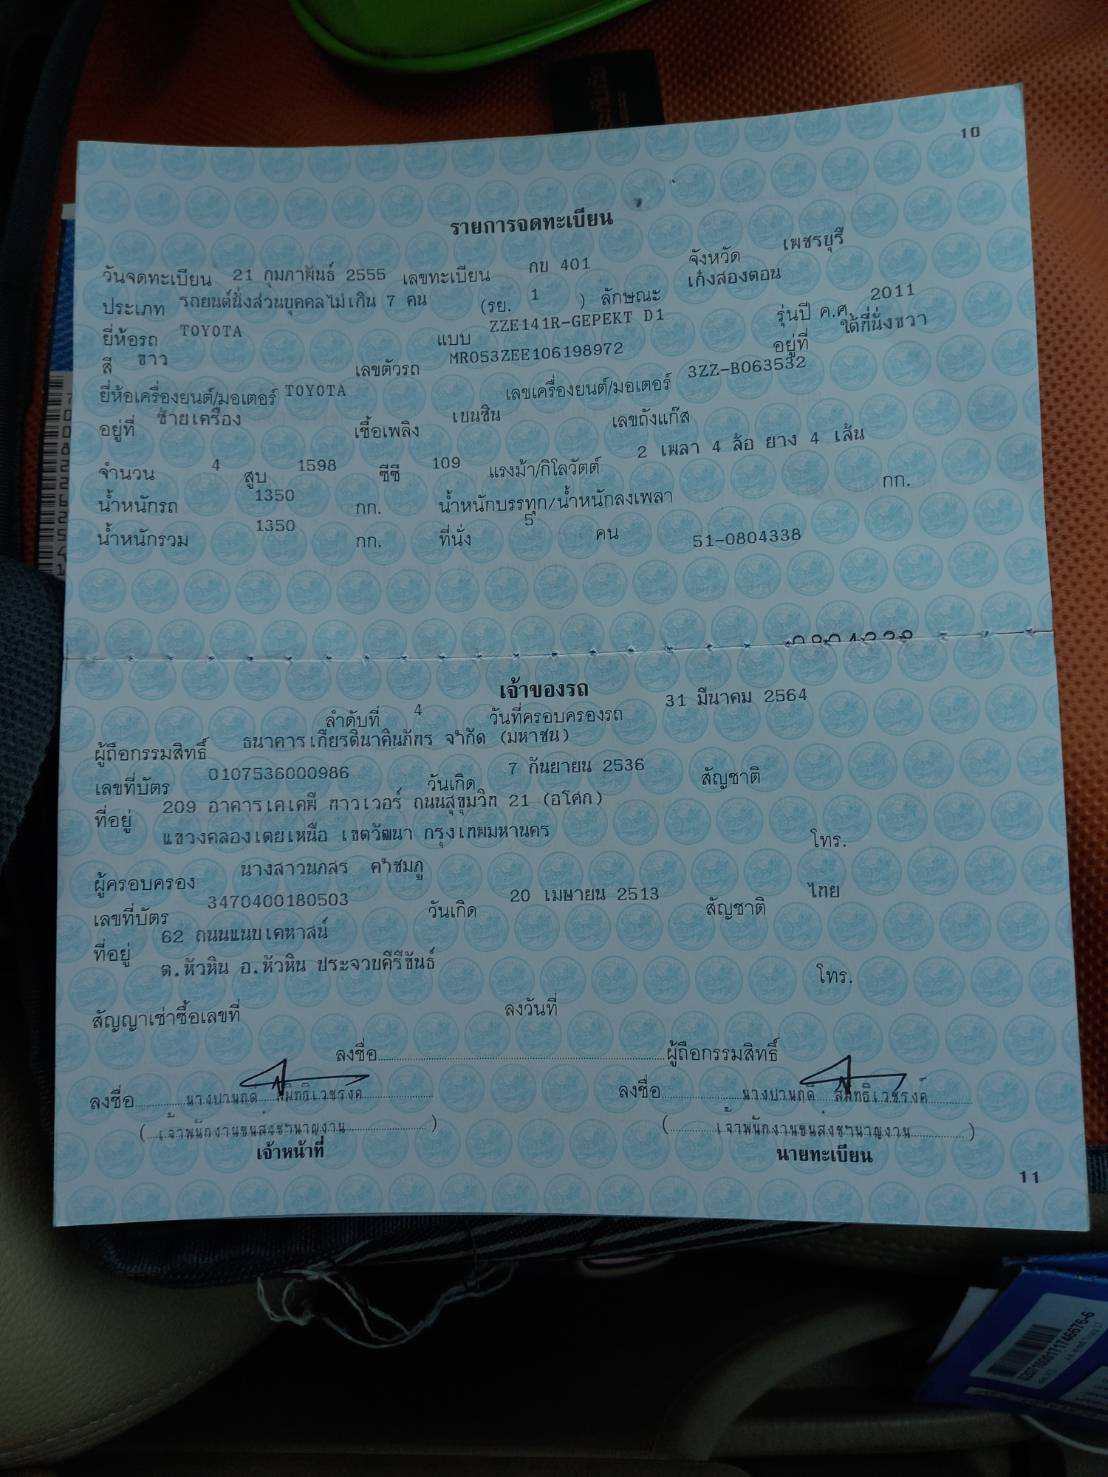 10
รายการจดทะเบียน
วันจดทะเบียน 21 กุมภาพันธ์ 2555 เลขทะเบียน กข 401 จังหวัด เพชรบุรี
ประเภท รถยนต์นั่งส่วนบุคคลไม่เกิน 7 คน (รย. 1 ) ลักษณะ เก๋งสองตอน
ยี่ห้อรถ TOYOTA แบบ ZZE141R-GEPEKT D1 รุ่นปี ค.ศ. 2011
สี ขาว เลขตัวรถ MR053ZEE106198972 อยู่ที่ ใต้ที่นั่งขวา
ยี่ห้อเครื่องยนต์/มอเตอร์ TOYOTA เลขเครื่องยนต์/มอเตอร์ 3ZZ-B063532
อยู่ที่ ซ้ายเครื่อง เชื้อเพลิง เบนซิน เลขถังแก๊ส
จำนวน 4 สูบ 1598 ซีซี 109 แรงม้า/กิโลวัตต์ 2 เพลา 4 ล้อ ยาง 4 เส้น
น้ำหนักรถ 1350 กก. น้ำหนักบรรทุก/น้ำหนักลงเพลา กก.
น้ำหนักรวม 1350 กก. ที่นั่ง 5 คน 51-0804338
เจ้าของรถ
ลำดับที่ 4 วันที่ครอบครองรถ 31 มีนาคม 2564
ผู้ถือกรรมสิทธิ์ ธนาคารเกียรตินาคินภัทร จำกัด (มหาชน)
เลขที่บัตร 0107536000986 วันเกิด 7 กันยายน 2536 สัญชาติ
ที่อยู่ 209 อาคารเคเคพี ทาวเวอร์ ถนนสุขุมวิท 21 (อโศก)
แขวงคลองเตยเหนือ เขตวัฒนา กรุงเทพมหานคร โทร.
ผู้ครอบครอง นางสาวนภสร คำชมภู
เลขที่บัตร 3470400180503 วันเกิด 20 เมษายน 2513 สัญชาติ ไทย
ที่อยู่ 62 ถนนแนบเคหาสน์
ต.หัวหิน อ.หัวหิน ประจวบคีรีขันธ์ โทร.
สัญญาเช่าซื้อเลขที่ ลงวันที่
ลงชื่อ ผู้ถือกรรมสิทธิ์
ลงชื่อ นางปานฤดี สิมิทธิเวชรงค์ ลงชื่อ นางปานฤดี สิมิทธิเวชรงค์
(เจ้าพนักงานขนส่งชำนาญงาน) (เจ้าพนักงานขนส่งชำนาญงาน)
เจ้าหน้าที่ นายทะเบียน
11